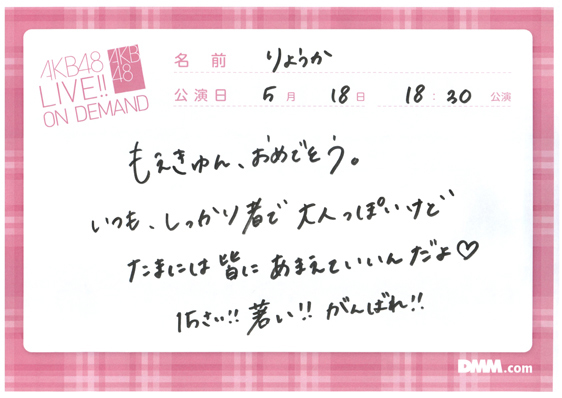 AKB48
LIVE!!
ON DEMAND
AKB
48
名前 りょうか
公演日 5月 18日 18:30 公演
もえきゅん、おめでとう。
いつも、しっかり者で大人っぽいけど
たまには皆にあまえていいんだよ♡
15さい!! 若い!! がんばれ!!
DMM.com